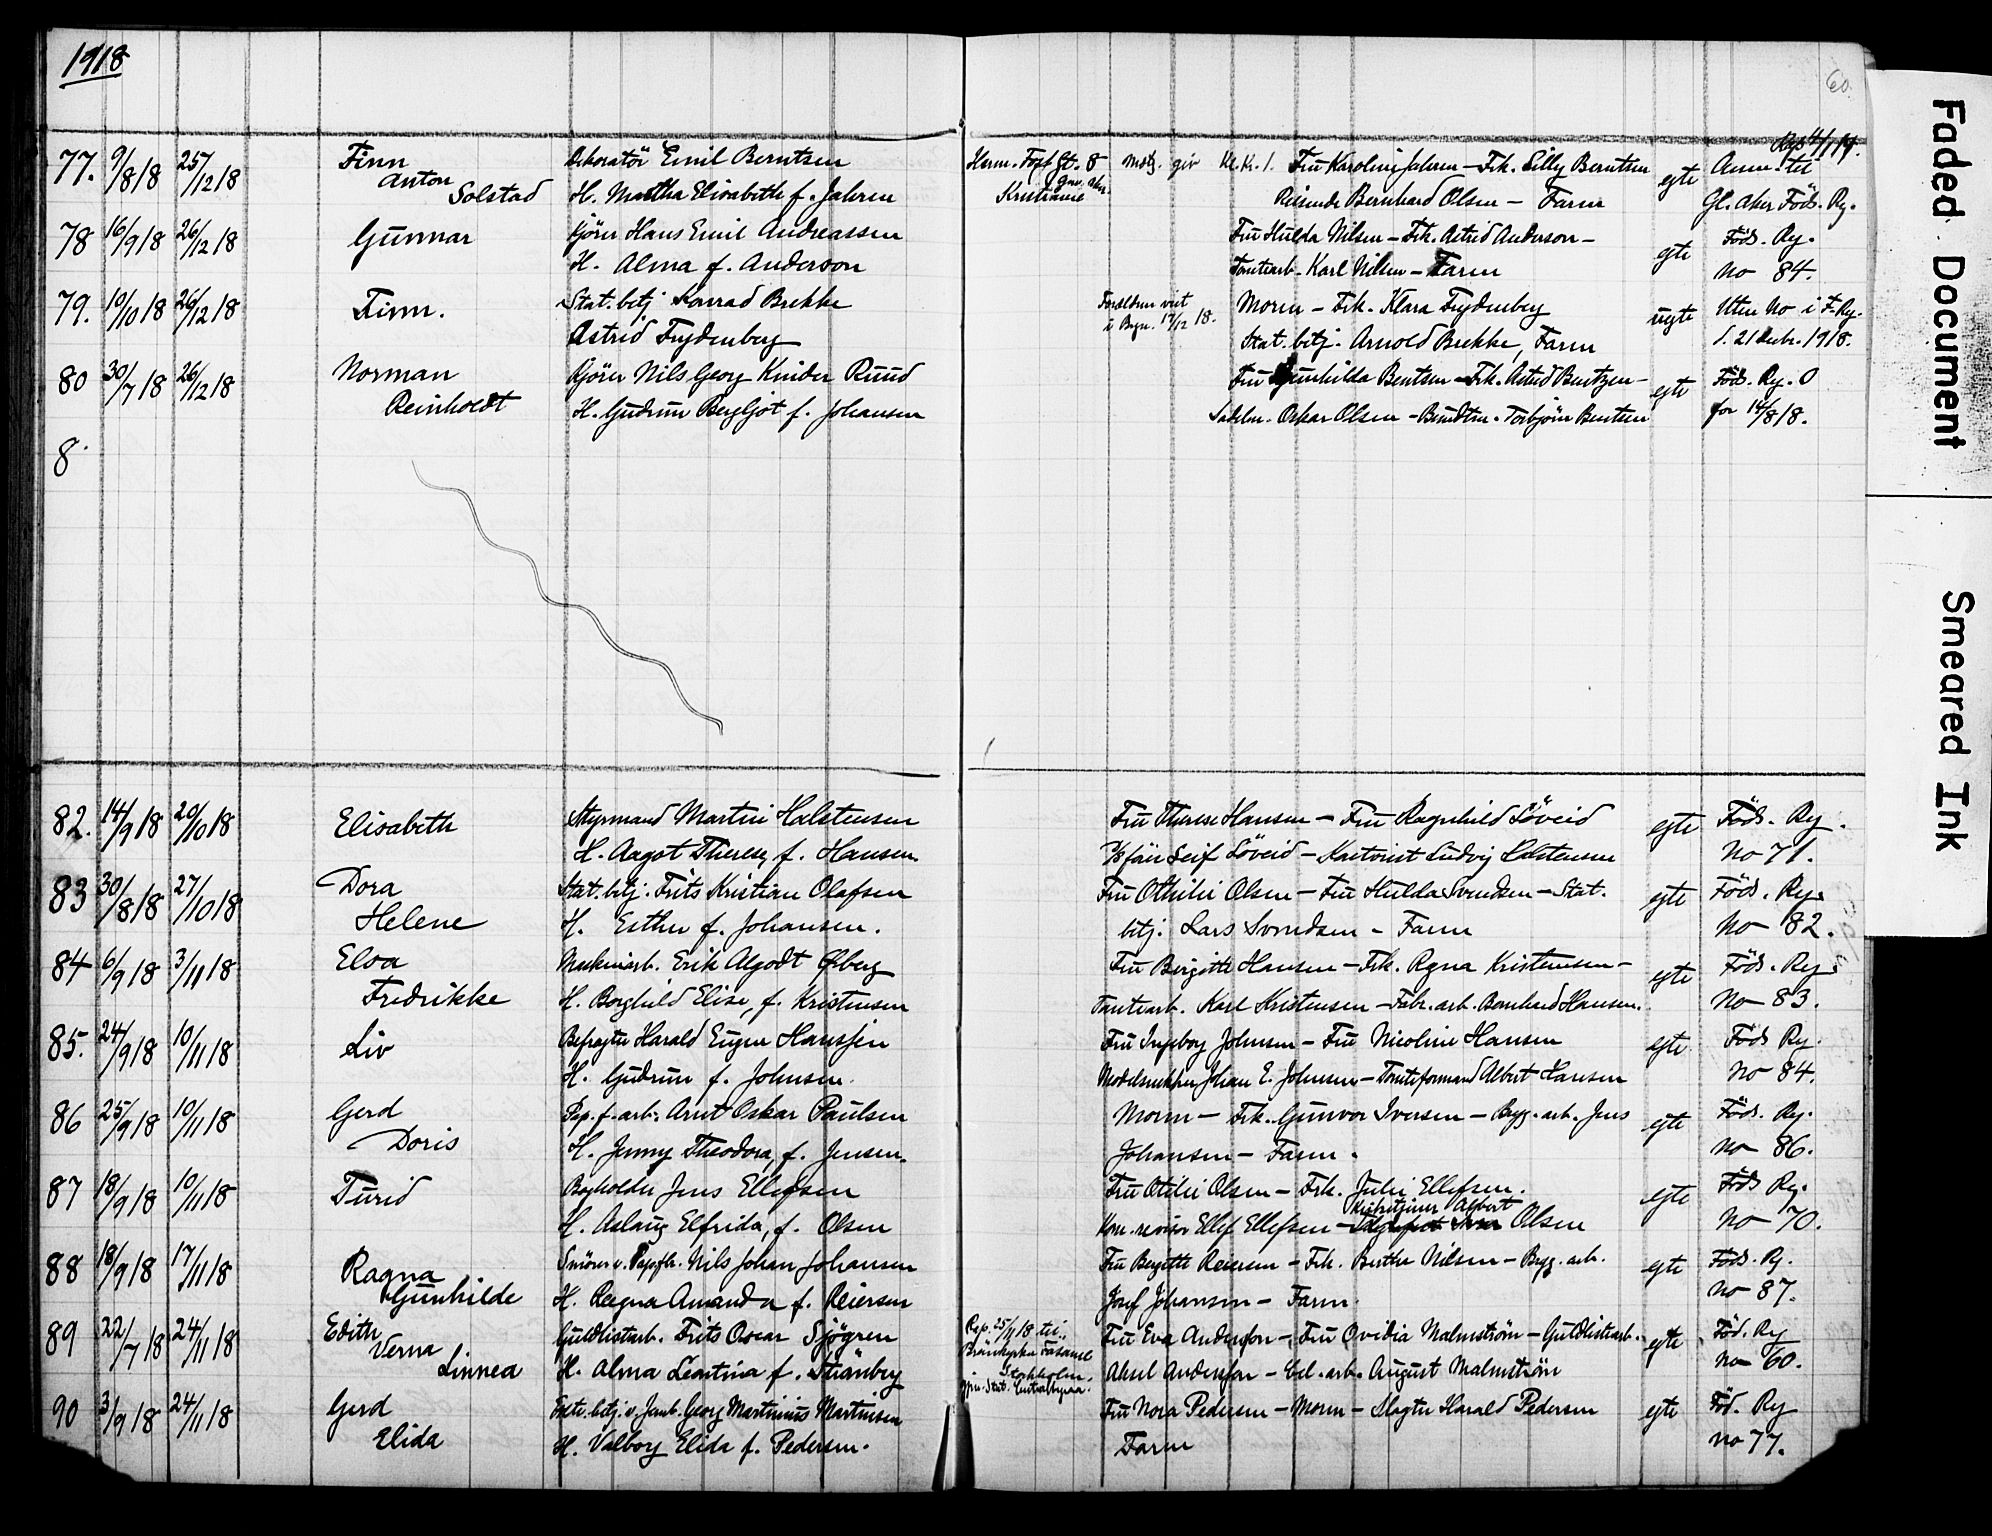 1918
60.
77. 9/8 18 25/12 18 Finn Dekoratör Emil Berntsen Herm. Foss Gt. 8 Kl. K. 1. Fru Karoline Jahren – Frk. Lilly Berntsen egte Anm. til
Anton
Solstad H. Martha Elisabeth f. Jahren Kristiania Reisende Bernhard Olsen – Faren Gl. Aker Föds. Rg.
78 16/9 18 26/12 18 Gunnar Kjörer Hans Emil Andreassen Fru Hulda Nilsen – Frk. Astrid Anderson – egte Föds. Rg.
H. Alma f. Anderson Tomtearb. Karl Nilsen – Faren No 84.
79. 10/10 18 26/12 18 Finn. Stat. betj. Konrad Brekke Foreldrene viet Moren – Frk. Klara Frydenberg uegte Uten No i F. Rg.
i Bym. 17/12 18.
Astrid Frydenberg Stat. betj. Arnold Brekke, Faren d. 21 decbr. 1918.
80 30/7 18 26/12 18 Norman Kjörer Nils Georg Kinder Ruud Fru Gunhilda Bentsen – Frk. Astrid Bentzen – egte Föds. Rg. 0
Reinholdt H. Gudrun Bergljot f. Johansen Oskar Olsen – Torbjörn Bentsen for 14/8 18.
8
82. 14/9 18 20/10 18 Elisabeth Styrmand Martin Halstensen Fru Therese Hansen – Fru Ragnhild Löveid egte Föds. Rg.
H. Aagot Therese, f. Hansen Leif Löveid – Ludvig Halstensen No 71.
83 30/8 18 27/10 18 Dora Stat. betj. Frits Kristian Olafsen Fru Othilie Olsen – Fru Hulda Svendsen – Stat. egte Föds. Rg.
Helene H. Esther f. Johansen. betj. Lars Svendsen – Faren No 82.
84 6/9 18 3/11 18 Elva Maskinarb. Erik Algodt Øberg Fru Birgitte Hansen – Frk. Agna Kristensen – egte Föds. Rg.
Fredrikke H. Borghild Elise, f. Kristensen Tomtearb. Karl Kristensen – Fabr. arb. Bernhard Hansen. No 83.
85. 24/9 18 10/11 18 Liv Befragter Harald Eugen Hanssen Fru Ingeborg Johnsen – Fru Nicoline Hansen egte Föds Rg.
H. Gudrun f. Johnsen. Modelsnekker Johan E. Johnsen – Tomteformand Albert Hansen No 84.
86 25/9 18 10/11 18 Gerd Pap. f. arb. Arnt Oskar Paulsen Moren – Frk. Gunvor Iversen – Bryg. arb. Jens egte Föds. Rg.
Doris H. Jenny Theodora, f. Jensen. Johansen – Faren. No 86.
87 18/9 18 10/11 18 Turid Bogholder Jens Ellefsen Fru Otilie Olsen – Frk. Julie Ellefsen. egte Föds Rg.
Albert
H. Aslaug Elfrida, f. Olsen Kom. revisor Ellef Ellefsen – Olsen No 70.
88 18/9 18 17/11 18 Ragna Smörer v. Papfbr. Nils Johan Johansen Fru Bergitte Reiersen – Frk. Berthe Nilsen – Bryg. arb. egte Föds. Rg.
Gunhilde H. Ragna Amanda f. Reiersen Josef Johansen – Faren. No 87.
89 22/7 18 24/11 18 Edith Guldlistarb. Frits Oscar Sjögren Rep. 25/11 18 til Fru Eva Andersson – Fru Ovidia Malmström – Guldlistarb. egte Föd. Rg
Verna Brännkyrka
Linnea H. Alma Leontina f. Stockholm. Aksel Andersson – arb. August Malmström No 60.
90 3/9 18 24/11 18 Gerd Extr. betj. v. Jernb. Georg Martinius Martinsen Fru Nora Pedersen – Moren – Slagter Harald Pedersen egte Föd. Rg
Elida H. Valborg Elida f. Pedersen. Faren No 77.
Faded Document
Smeared Ink